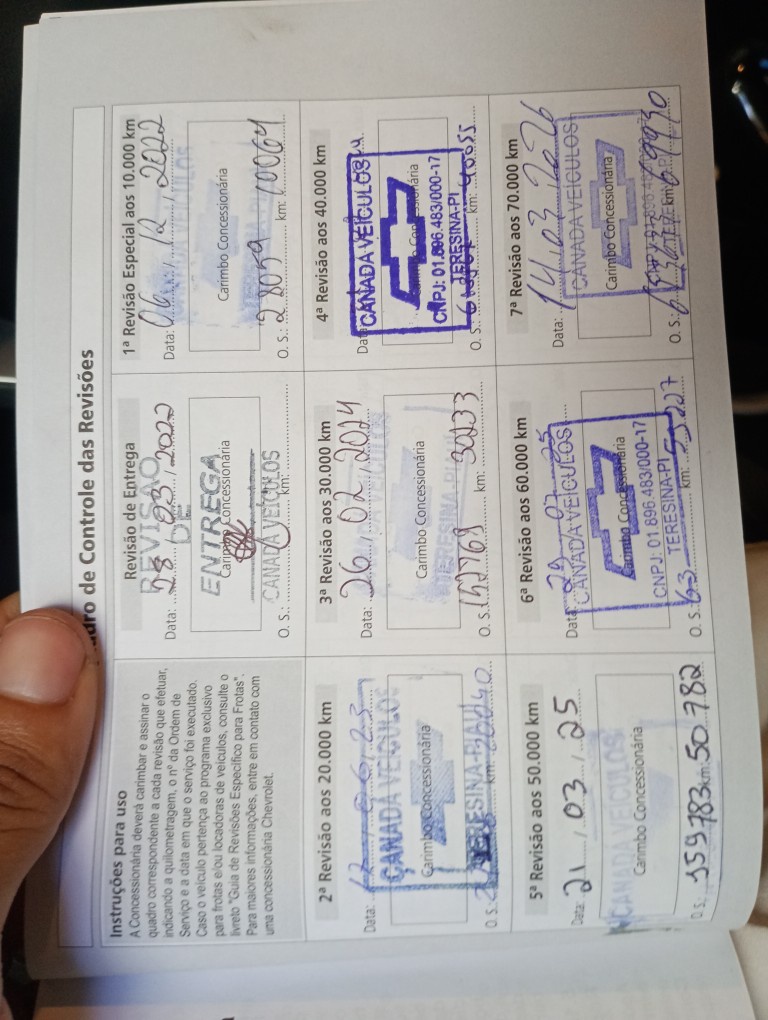 Quadro de Controle das Revisões
Instruções para uso
A Concessionária deverá carimbar e assinar o
quadro correspondente a cada revisão que efetuar,
indicando a quilometragem, o nº da Ordem de
Serviço e a data em que o serviço foi executado.
Caso o veículo pertença ao programa exclusivo
para frotas e/ou locadoras de veículos, consulte o
livreto "Guia de Revisões Específico para Frotas".
Para maiores informações, entre em contato com
uma concessionária Chevrolet.
Revisão de Entrega
REVISÃO
DE
Data: 28/03/2022
ENTREGA
Carimbo Concessionária
CANADA VEÍCULOS
O. S.: km:
1ª Revisão Especial aos 10.000 km
Data: 06/12/2022
Carimbo Concessionária
O. S.: 28059 km: 10064
2ª Revisão aos 20.000 km
Data: 23
CANADA VEÍCULOS
Carimbo Concessionária
TERESINA-PIAUÍ
O. S. km:
3ª Revisão aos 30.000 km
Data: 26/02/2024
Carimbo Concessionária
TERESINA-PIAUÍ
O. S.: 152769 km: 30233
4ª Revisão aos 40.000 km
Data:
CANADA VEICULOS
CNPJ: 01.896.483/000-17
TERESINA-PI
O. S.: km: 40055
5ª Revisão aos 50.000 km
Data: 21/03/25
CANADA VEÍCULOS
Carimbo Concessionária
O. S. 159783 km 50.782
6ª Revisão aos 60.000 km
Data:
CANADA VEÍCULOS
Carimbo Concessionária
CNPJ: 01 896 483/000-17
TERESINA-PI
O. S.: km:
7ª Revisão aos 70.000 km
Data: 14/03/2026
CANADA VEÍCULOS
Carimbo Concessionária
O. S.: km: 69930